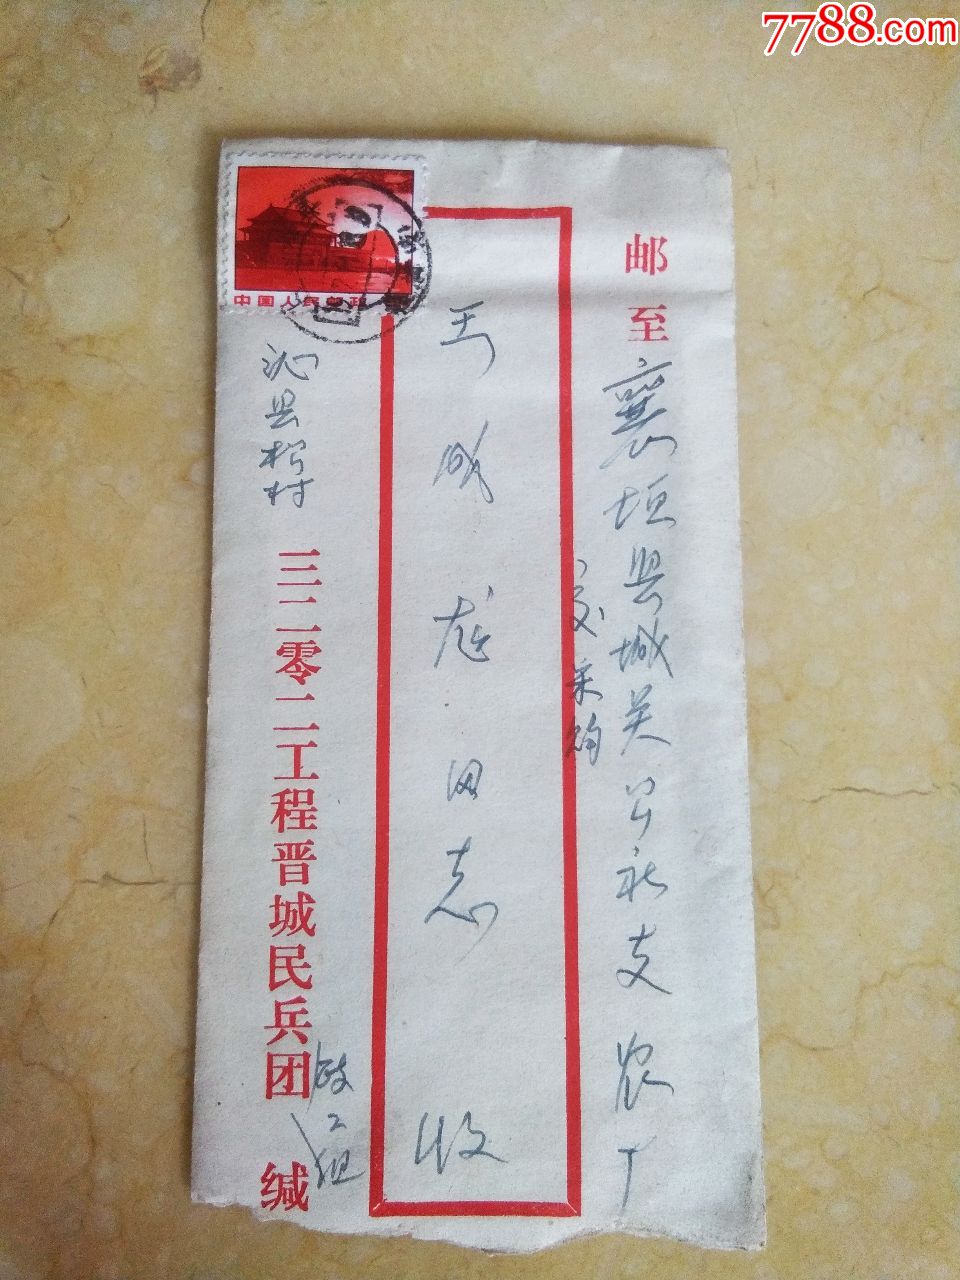 7788.com
中国人民邮政
邮至
襄垣县城关公社支农厂
交采购
王成龙同志 收
沁县
村
三二二零二工程晋城民兵团 缄
政工组